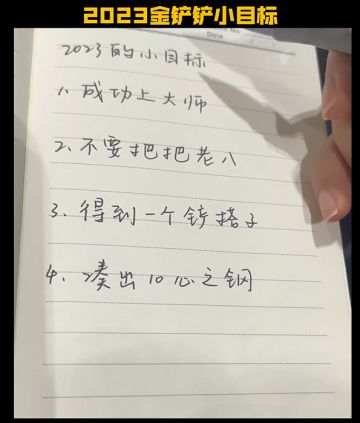 2023金铲铲小目标
Date
2023的小目标
1、成功上大师
2、不要把把老八
3、得到一个铲搭子
4、凑出10心之钢